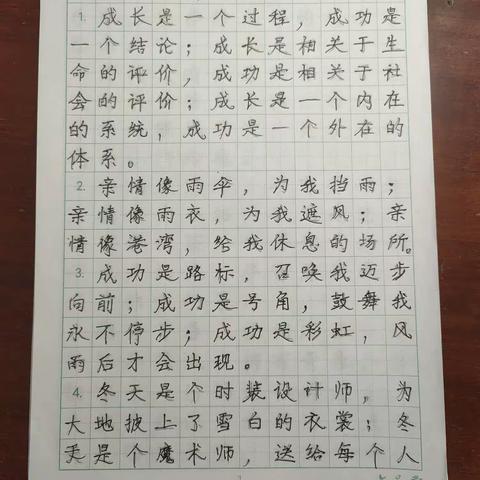 1. 成长是一个过程，成功是
一个结论；成长是相关于生
命的评价，成功是相关于社
会的评价；成长是一个内在
的系统，成功是一个外在的
体系。
2. 亲情像雨伞，为我挡雨；
亲情像雨衣，为我遮风；亲
情像港湾，给我休息的场所。
3. 成功是路标，召唤我迈步
向前；成功是号角，鼓舞我
永不停步；成功是彩虹，风
雨后才会出现。
4. 冬天是个时装设计师，为
大地披上了雪白的衣裳；冬
天是个魔术师，送给每个人